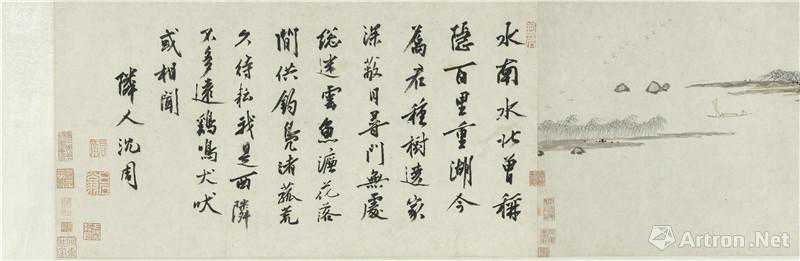 水南水北曾稱
隱百里重湖今
屬君種樹遶家
深蔽日尋門無處
總迷雲魚濂花落
閒供釣鳧渚菰荒
久待耘我是西隣
不多遠鷄鳴犬吠
或相聞
隣人沈周
Artron.Net